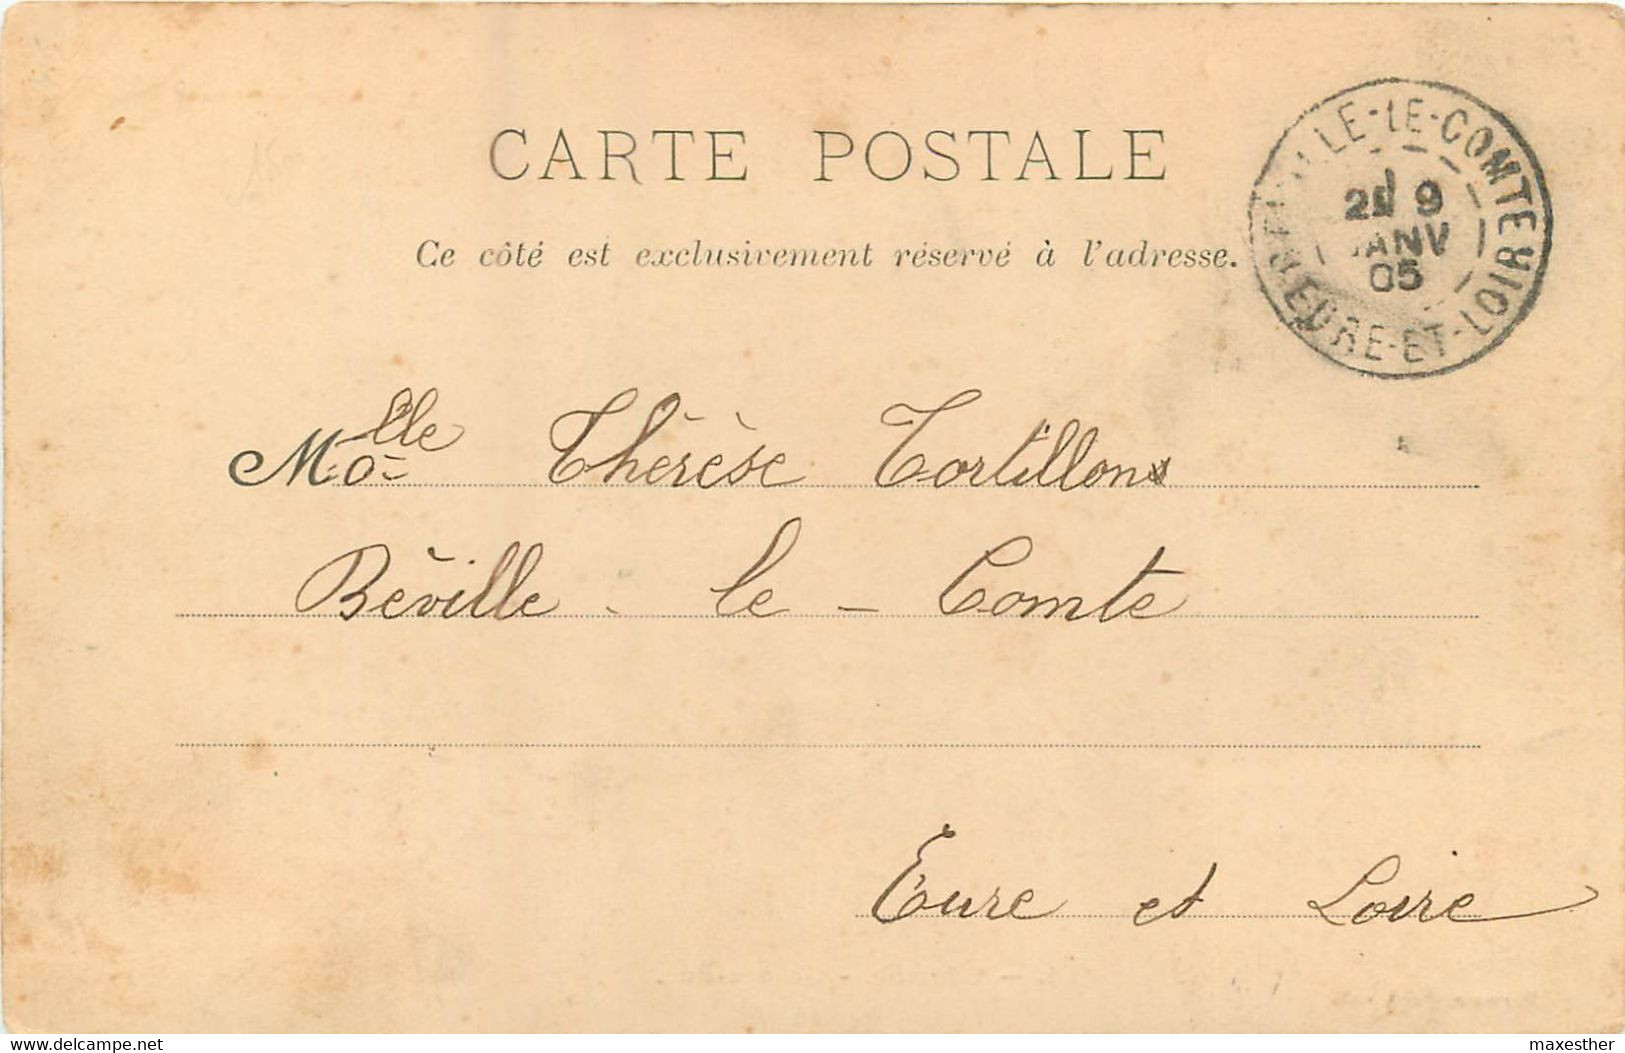 CARTE POSTALE
Ce côté est exclusivement réservé à l'adresse.
LE-COMTE
9
JANV
05
EURE-ET-LOIR
Melle Thérèse Tortillon
Béville - le - Comte
Eure et Loire
www.delcampe.net
maxesther